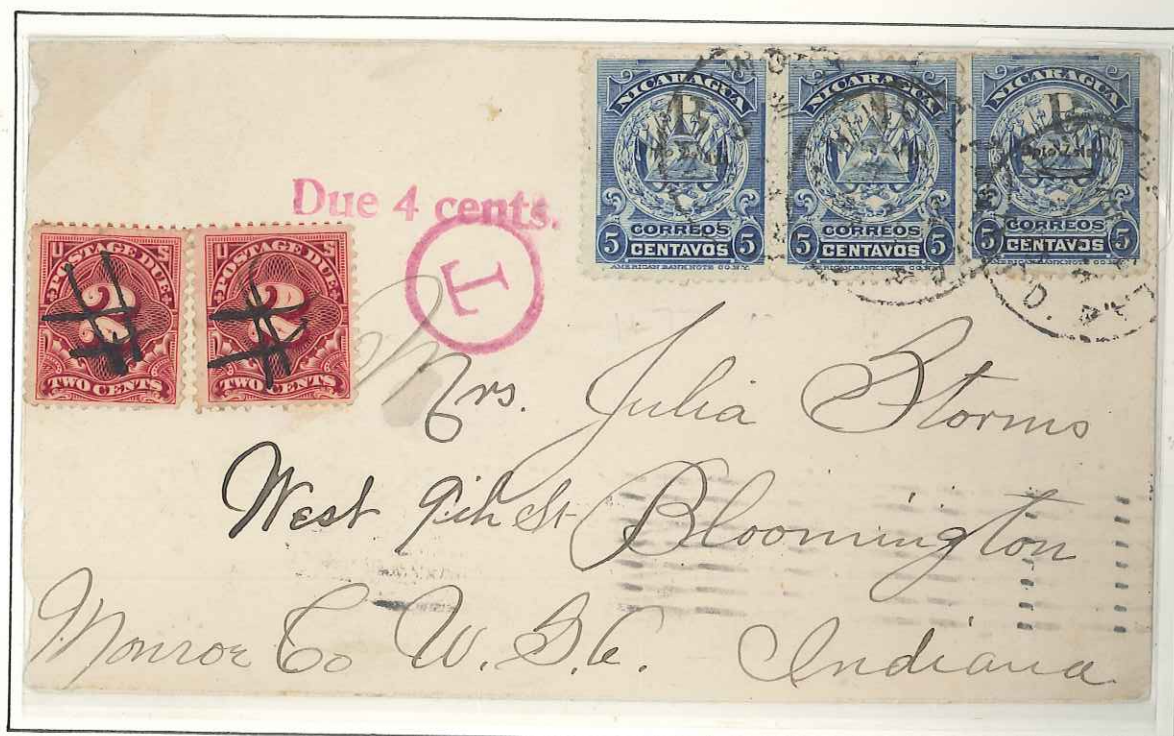 NICARAGUA
CORREOS
5 CENTAVOS 5
AMERICAN BANK NOTE CO. N.Y.
NICARAGUA
CORREOS
5 CENTAVOS 5
AMERICAN BANK NOTE CO. N.Y.
NICARAGUA
CORREOS
5 CENTAVOS 5
AMERICAN BANK NOTE CO. N.Y.
Due 4 cents.
T
U S
POSTAGE DUE
2
TWO CENTS
U S
POSTAGE DUE
2
TWO CENTS
Mrs. Julia Storms
West 9th St Bloomington
Monroe Co U.S.A. Indiana